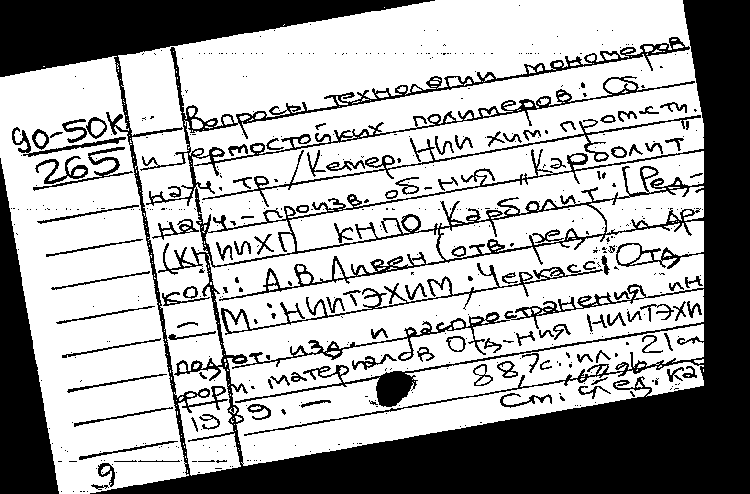 90-50К
265
Вопросы технологии мономеров
и термостойких полимеров: Сб.
науч. тр. / Кемер. НИИ хим. пром-сти.
науч.-произв. об-ния „Карболит"
(КНИИХП) КНПО „Карболит"; [Ред-
кол.: А.В. Ливен (отв. ред.) и др
.- М.: НИИТЭХИМ; Черкассы: Отд
подгот., изд. и распространения ин
форм. материалов Отд-ния НИИТЭХИ
1989. — 88,7с.: ил.; 21см
См. след. кар
9